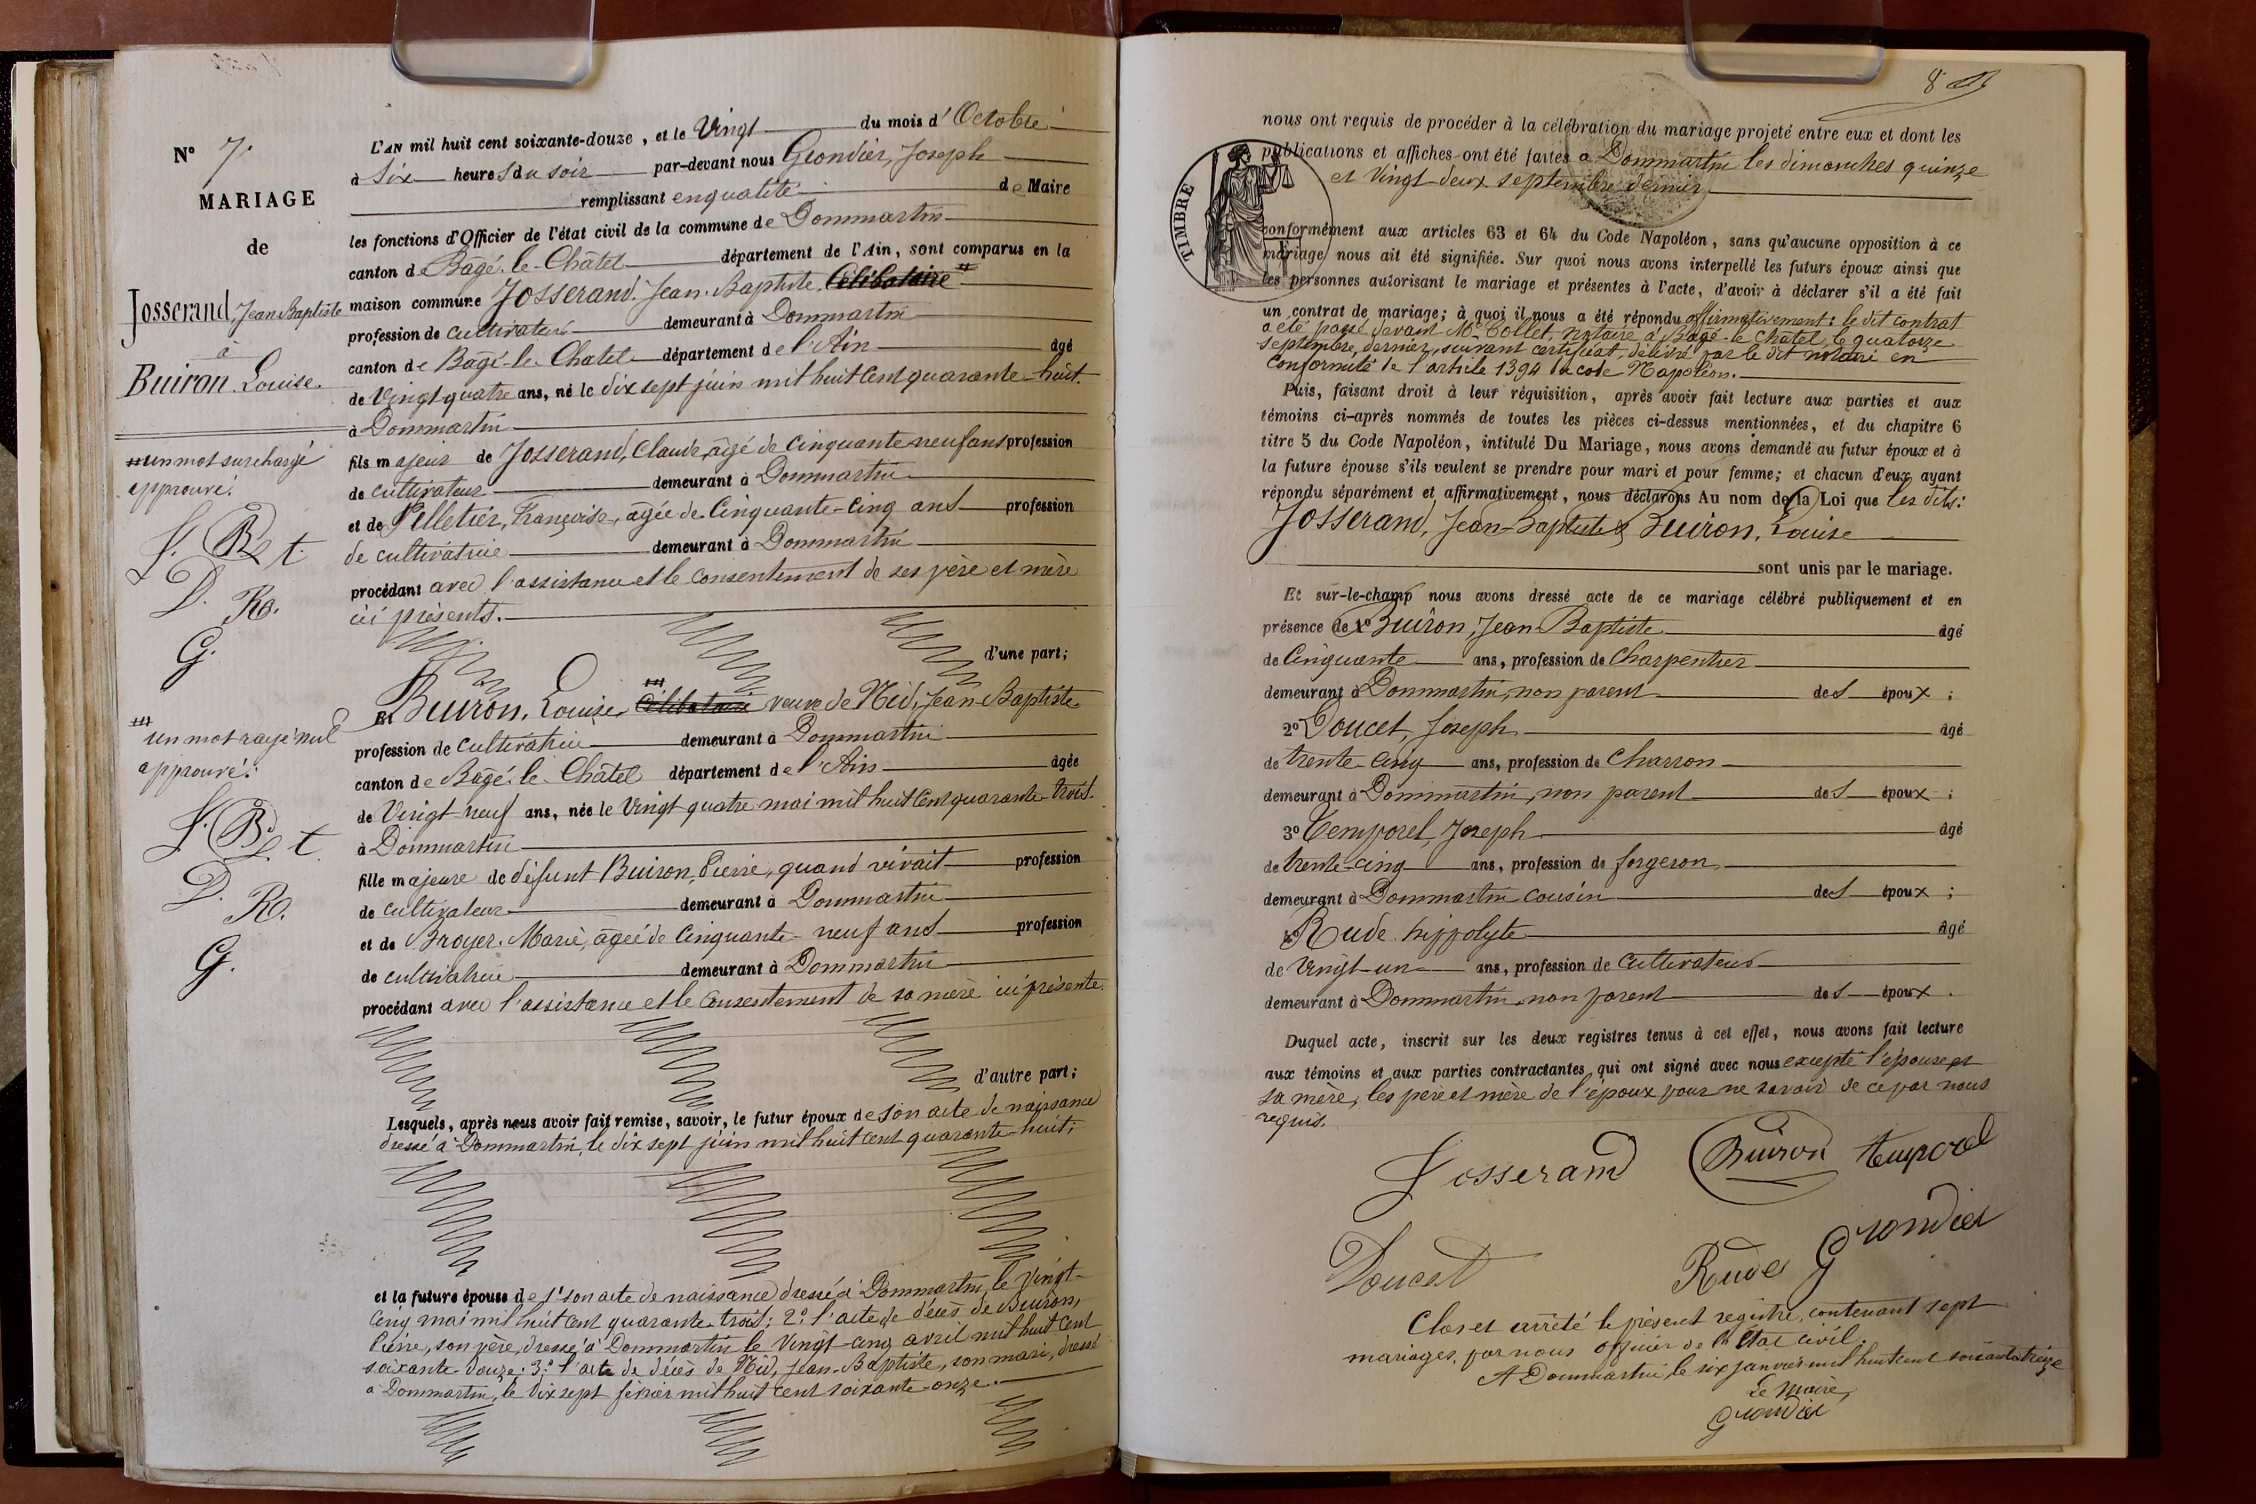 N° 7.
MARIAGE
de
Josserand, Jean Baptiste
à
Buiron Louise.
un mot surchargé
approuvé.
J. B. t.
D. R.
G.
un mot rayé nul
approuvé.
J. B. t.
D. R.
G.
L'AN mil huit cent soixante-douze, et le Vingt du mois d'Octobre
à Six heures du soir par-devant nous Grondier, Joseph
remplissant en qualité de Maire
les fonctions d'Officier de l'état civil de la commune de Dommartin
canton de Bâgé-le-Châtel département de l'Ain, sont comparus en la
maison commune Josserand Jean-Baptiste Célibataire
profession de cultivateur demeurant à Dommartin
canton de Bâgé-le-Chatel département de l'Ain âgé
de Vingt quatre ans, né le dix sept juin mil huit cent quarante-huit.
à Dommartin
fils majeur de Josserand, Claude, âgé de Cinquante neuf ans profession
de cultivateur demeurant à Dommartin
et de Pelletier, Françoise, âgée de Cinquante-cinq ans profession
de cultivatrice demeurant à Dommartin
procédant avec l'assistance et le consentement de ses père et mère
ici présents.
d'une part;
Et Buiron, Louise, Célibataire veuve de Nid, Jean-Baptiste
profession de cultivatrice demeurant à Dommartin
canton de Bâgé-le-Châtel département de l'Ain âgée
de Vingt-neuf ans, née le Vingt quatre mai mil huit cent quarante-trois.
à Dommartin
fille majeure de défunt Buiron, Pierre, quand vivait profession
de cultivateur demeurant à Dommartin
et de Broyer, Marie, âgée de Cinquante-neuf ans profession
de cultivatrice demeurant à Dommartin
procédant avec l'assistance et le consentement de sa mère ici présente.
d'autre part;
Lesquels, après nous avoir fait remise, savoir, le futur époux de son acte de naissance
dressé à Dommartin, le dix sept juin mil huit cent quarante-huit;
et la future épouse de 1° son acte de naissance dressé à Dommartin, le Vingt-
Cinq mai mil huit cent quarante-trois; 2° l'acte de décès de Buiron,
Pierre, son père, dressé à Dommartin le Vingt-cinq avril mil huit cent
soixante-douze; 3° l'acte de décès de Nid, Jean-Baptiste, son mari, dressé
à Dommartin, le dix sept février mil huit cent soixante-onze.
8
TIMBRE
nous ont requis de procéder à la célébration du mariage projeté entre eux et dont les
publications et affiches ont été faites à Dommartin les dimanches quinze
et Vingt-deux septembre dernier
conformément aux articles 63 et 64 du Code Napoléon, sans qu'aucune opposition à ce
mariage nous ait été signifiée. Sur quoi nous avons interpellé les futurs époux ainsi que
les personnes autorisant le mariage et présentes à l'acte, d'avoir à déclarer s'il a été fait
un contrat de mariage; à quoi il nous a été répondu affirmativement: le dit contrat
a été passé devant Me Collet, notaire à Bâgé-le-Châtel, le quatorze
septembre, dernier, suivant certificat, délivré par le dit notaire en
conformité de l'article 1394 du code Napoléon.
Puis, faisant droit à leur réquisition, après avoir fait lecture aux parties et aux
témoins ci-après nommés de toutes les pièces ci-dessus mentionnées, et du chapitre 6
titre 5 du Code Napoléon, intitulé Du Mariage, nous avons demandé au futur époux et à
la future épouse s'ils veulent se prendre pour mari et pour femme; et chacun d'eux ayant
répondu séparément et affirmativement, nous déclarons Au nom de la Loi que les dits:
Josserand, Jean-Baptiste & Buiron, Louise
sont unis par le mariage.
Et sur-le-champ nous avons dressé acte de ce mariage célébré publiquement et en
présence de 1° Buiron, Jean-Baptiste âgé
de Cinquante ans, profession de Charpentier
demeurant à Dommartin, non parent des époux;
2° Doucet, Joseph âgé
de trente-cinq ans, profession de Charron
demeurant à Dommartin, non parent des époux;
3° Temporel, Joseph âgé
de trente-cinq ans, profession de forgeron
demeurant à Dommartin cousin des époux;
4° Rude hippolyte âgé
de Vingt-un ans, profession de Cultivateur
demeurant à Dommartin, non parent des époux.
Duquel acte, inscrit sur les deux registres tenus à cet effet, nous avons fait lecture
aux témoins et aux parties contractantes qui ont signé avec nous excepté l'épouse et
sa mère, les père et mère de l'époux pour ne savoir de ce par nous
requis.
Josserand Buiron Temporel
Doucet Rude Grondier
Clos et arrêté le présent registre, contenant sept
mariages, par nous officier de l'état civil.
A Dommartin, le six janvier mil huit cent soixante treize
Le Maire,
Grondier